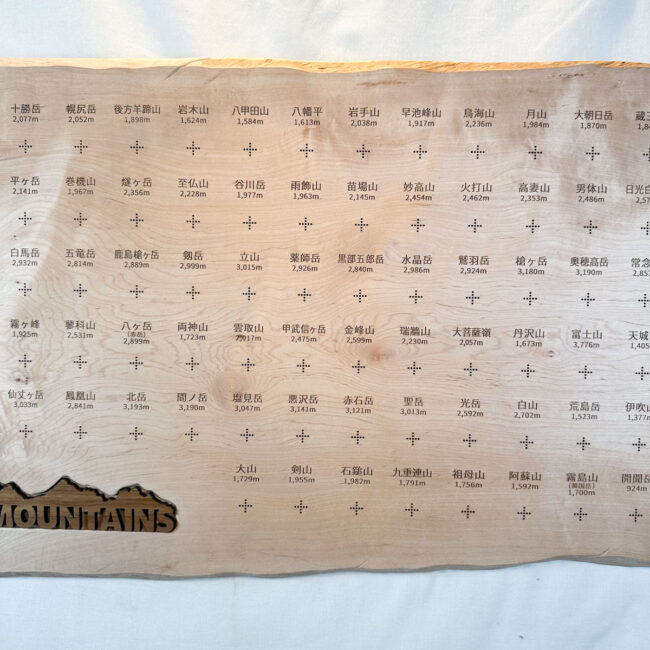 十勝岳 幌尻岳 後方羊蹄山 岩木山 八甲田山 八幡平 岩手山 早池峰山 鳥海山 月山 大朝日岳 蔵王
2,077m 2,052m 1,898m 1,624m 1,584m 1,613m 2,038m 1,917m 2,236m 1,984m 1,870m
平ヶ岳 巻機山 燧ヶ岳 至仏山 谷川岳 雨飾山 苗場山 妙高山 火打山 高妻山 男体山 日光白
2,141m 1,967m 2,356m 2,228m 1,977m 1,963m 2,145m 2,454m 2,462m 2,353m 2,486m
白馬岳 五竜岳 鹿島槍ヶ岳 剱岳 立山 薬師岳 黒部五郎岳 水晶岳 鷲羽岳 槍ヶ岳 奥穂高岳 常念
2,932m 2,814m 2,889m 2,999m 3,015m 2,926m 2,840m 2,986m 2,924m 3,180m 3,190m
霧ヶ峰 蓼科山 八ヶ岳 両神山 雲取山 甲武信ヶ岳 金峰山 瑞牆山 大菩薩嶺 丹沢山 富士山 天城
(赤岳)
1,925m 2,531m 2,899m 1,723m 2,017m 2,475m 2,599m 2,230m 2,057m 1,673m 3,776m
仙丈ヶ岳 鳳凰山 北岳 間ノ岳 塩見岳 悪沢岳 赤石岳 聖岳 光岳 白山 荒島岳 伊吹
3,033m 2,841m 3,193m 3,190m 3,047m 3,141m 3,121m 3,013m 2,592m 2,702m 1,523m
大山 剣山 石鎚山 九重連山 祖母山 阿蘇山 霧島山 開聞岳
(韓国岳)
1,729m 1,955m 1,982m 1,791m 1,756m 1,592m 1,700m 924m
MOUNTAINS